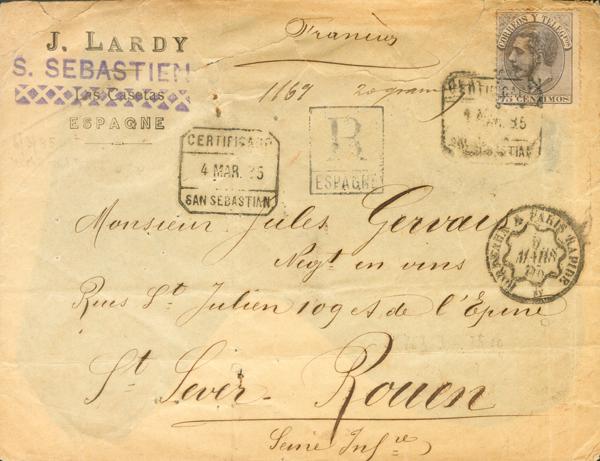 J. LARDY
S. SEBASTIEN
Las Casetas
ESPAGNE
1167 20 gram
CORREOS Y TELEGFOS
75 CENTIMOS
CERTIFICADO
4 MAR. 85
SAN SEBASTIAN
CERTIFICADO
4 MAR. 85
SAN SEBASTIAN
R
ESPAGNE
PARIS RAPIDE
MARS
Monsieur Jules Gervais
Negt en vins
Rue St Julien 109 et de l'Epine
St Sever - Rouen
Seine Infre